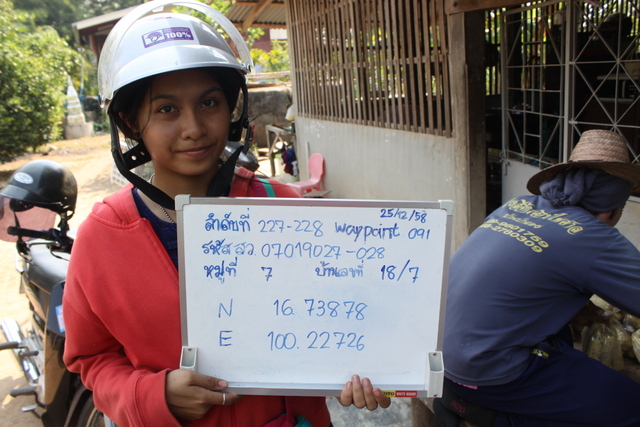 100%
25/12/58
ลำดับที่ 227-228 waypoint 091
รหัส สว. 07019027-028
หมู่ที่ 7 บ้านเลขที่ 18/7
N 16.73878
E 100.22726